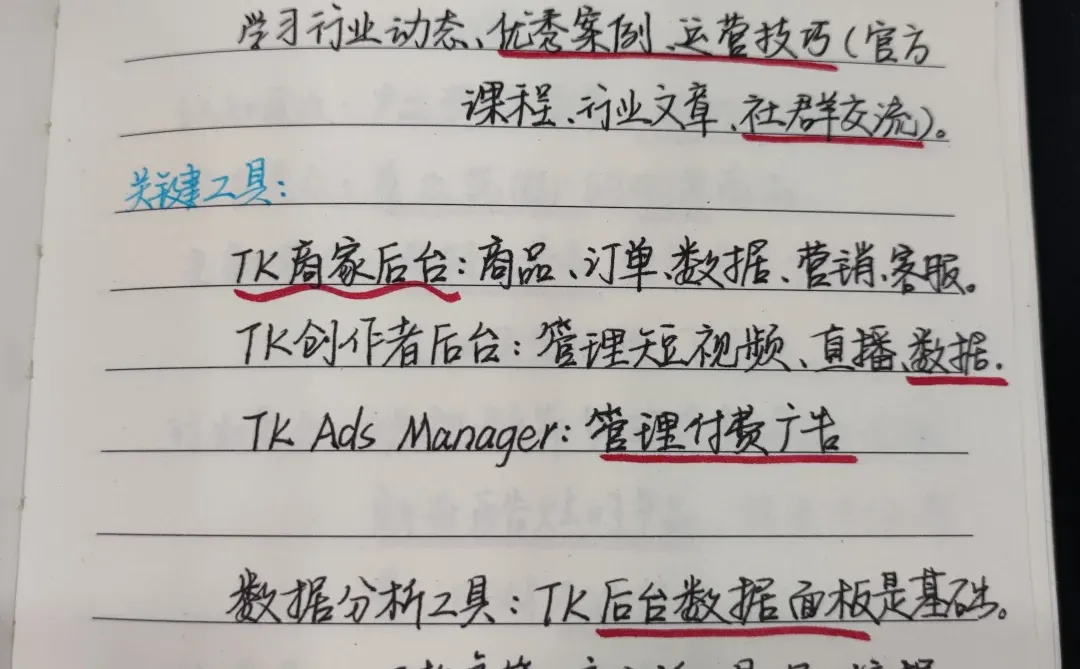 学习行业动态、优秀案例、运营技巧(官方
课程、行业文章、社群交流)。
关键工具:
TK商家后台:商品、订单、数据、营销、客服。
TK创作者后台:管理短视频、直播、数据.
TK Ads Manager:管理付费广告
数据分析工具:TK后台数据面板是基础。